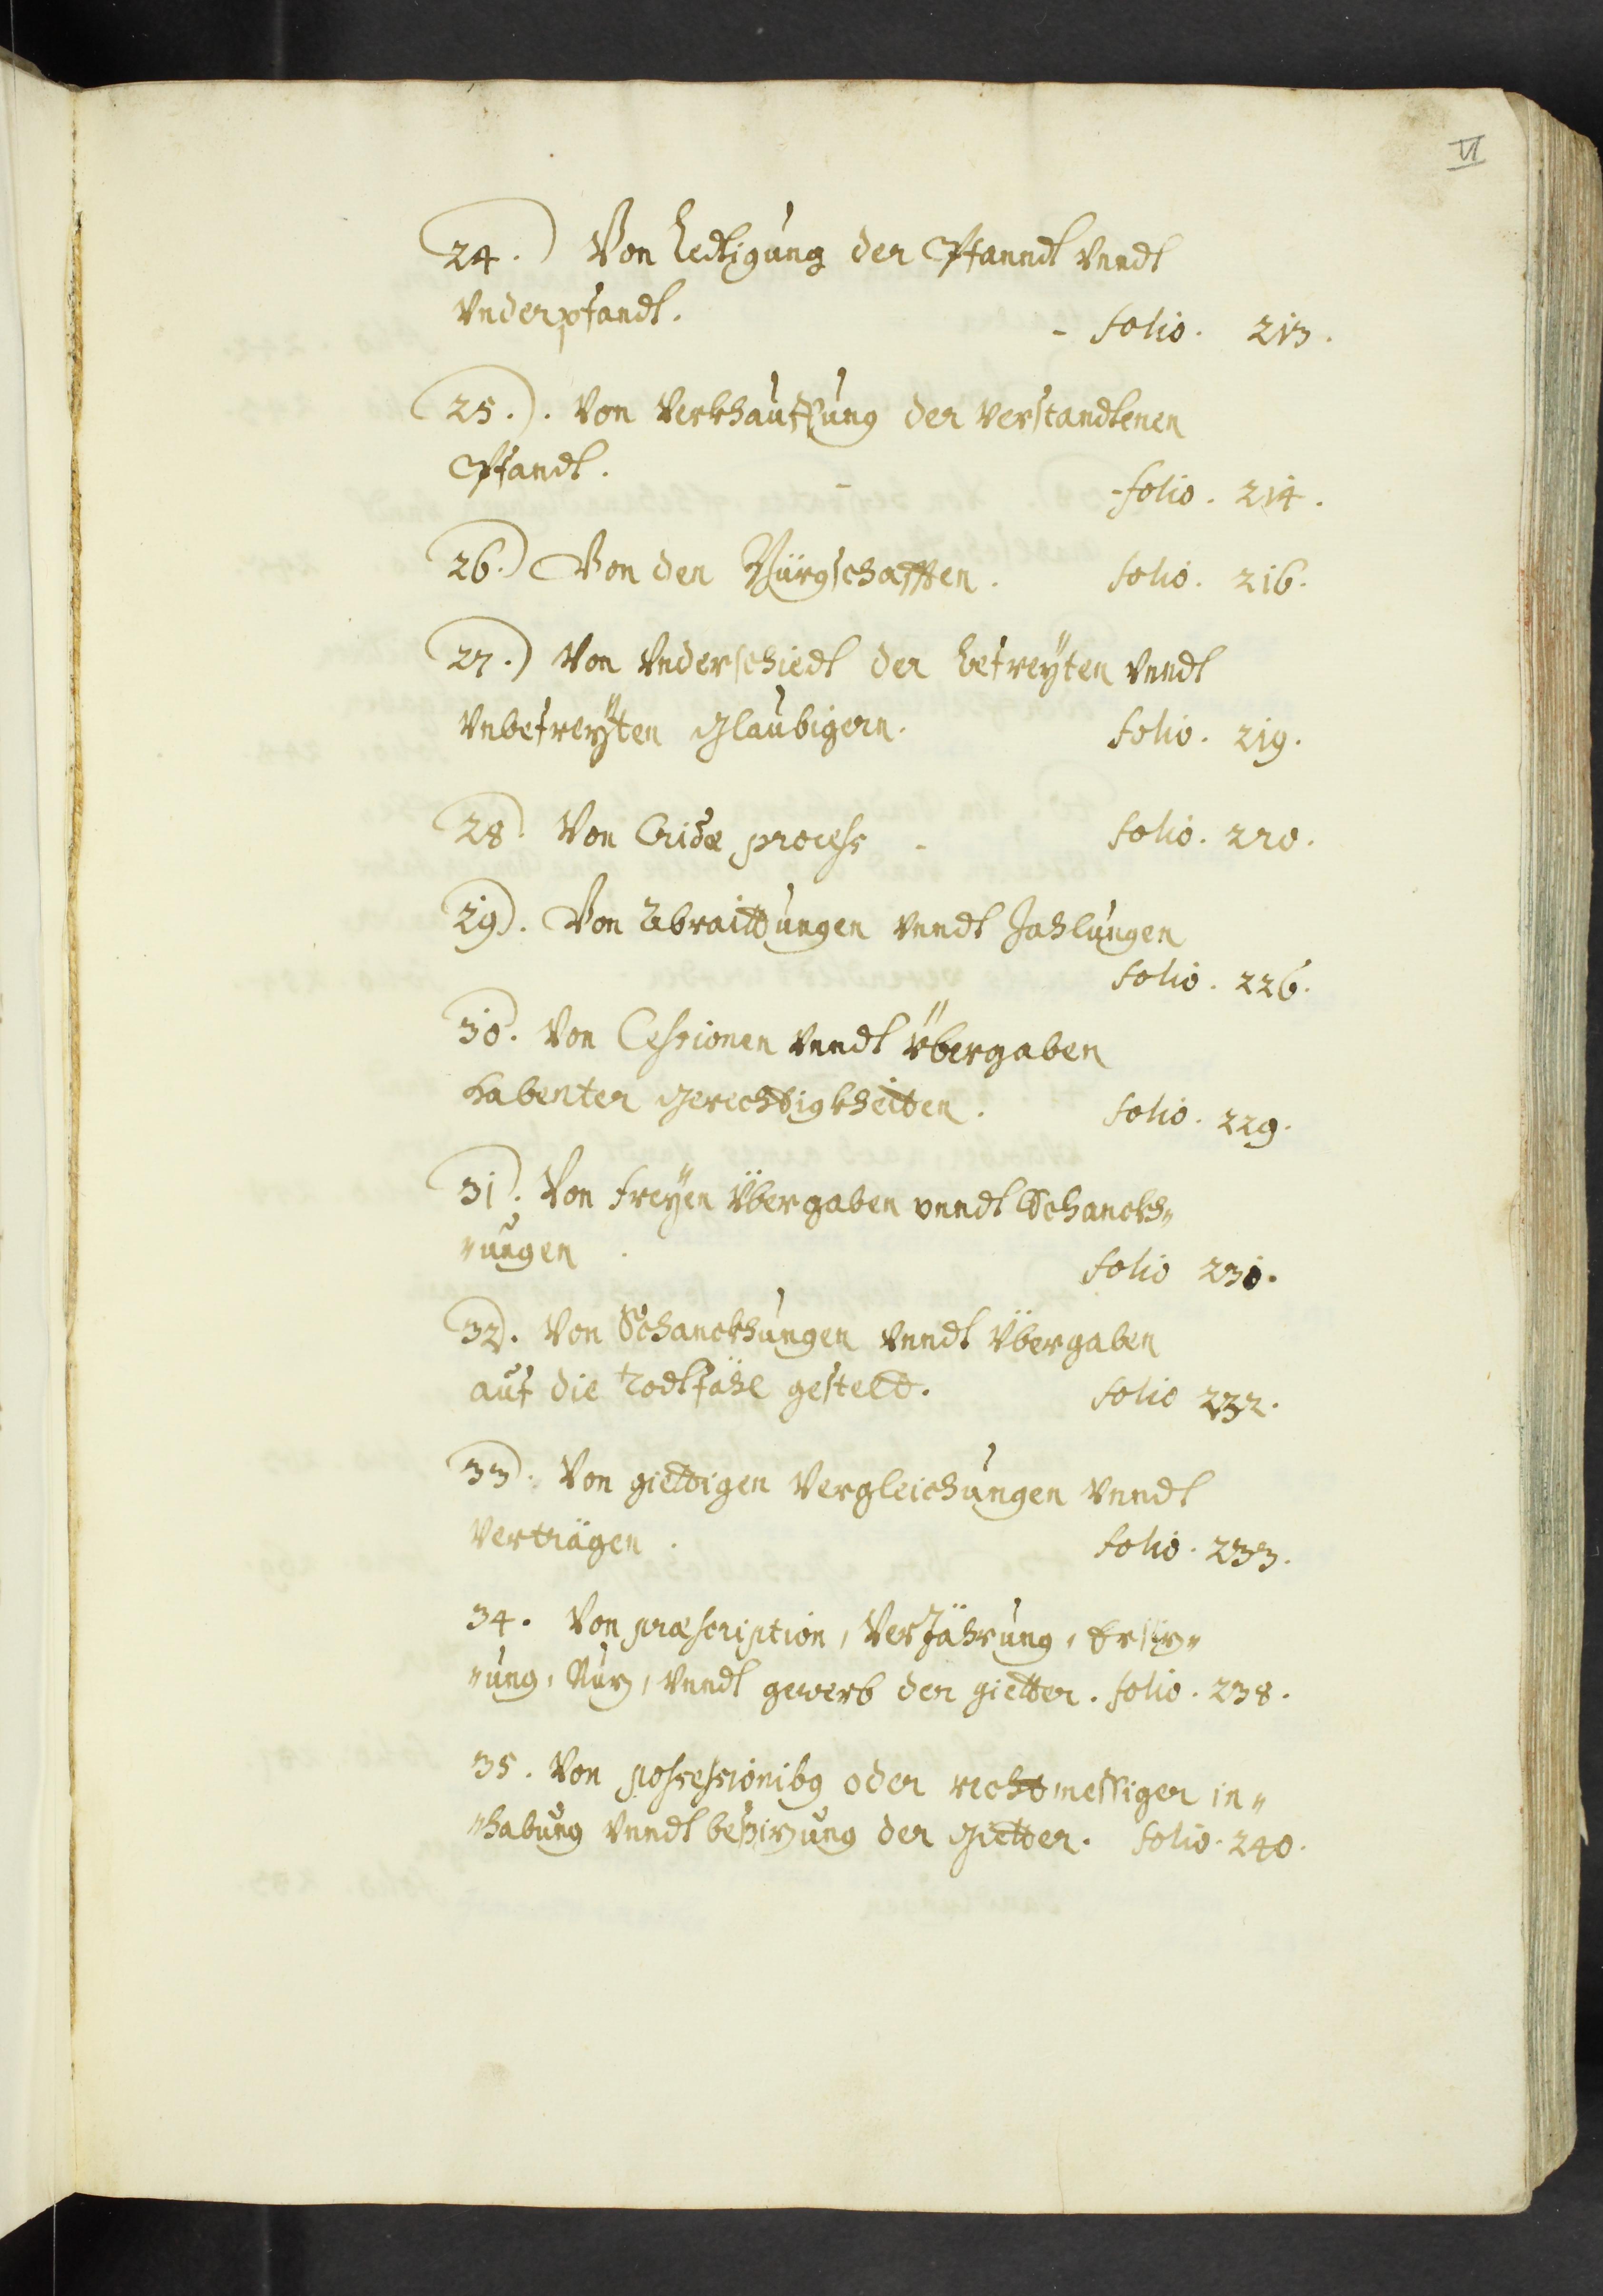 VI
24.) Von Ledigung der Pfanndt vnndt
vnderpfandt. - folio. 213.
25.). Von Verkhauffung der verstandtenen
Pfandt. - folio. 214.
26.) Von den Bürgschafften. folio. 216.
27.) Von vnderschiedt der befreÿten vnndt
vnbefreÿten Glaubigern. folio. 219.
28. Von Cridæ process - folio. 220.
29). Von Abraittungen vnndt Zahlungen
folio. 226.
30. Von Cessionen vnndt Übergaben
habenter Gerechtigkheitten. folio. 229.
31. Von Freÿen Übergaben vnndt Schanckh„
„ungen. folio 230.
32. Von Schanckhungen vnndt Übergaben
auf die Todtfähl gestelt. folio 232.
33. Von giettigen Vergleichungen vnndt
Verträgen. folio. 233.
34. Von præscription, VerJährung, Ersiz„
„ung, Nuz, vnndt gewerb der gietter. folio. 238.
35. Von possessionibq oder rechtmessiger in„
„habung vnndt besizung der Gietter. folio. 240.